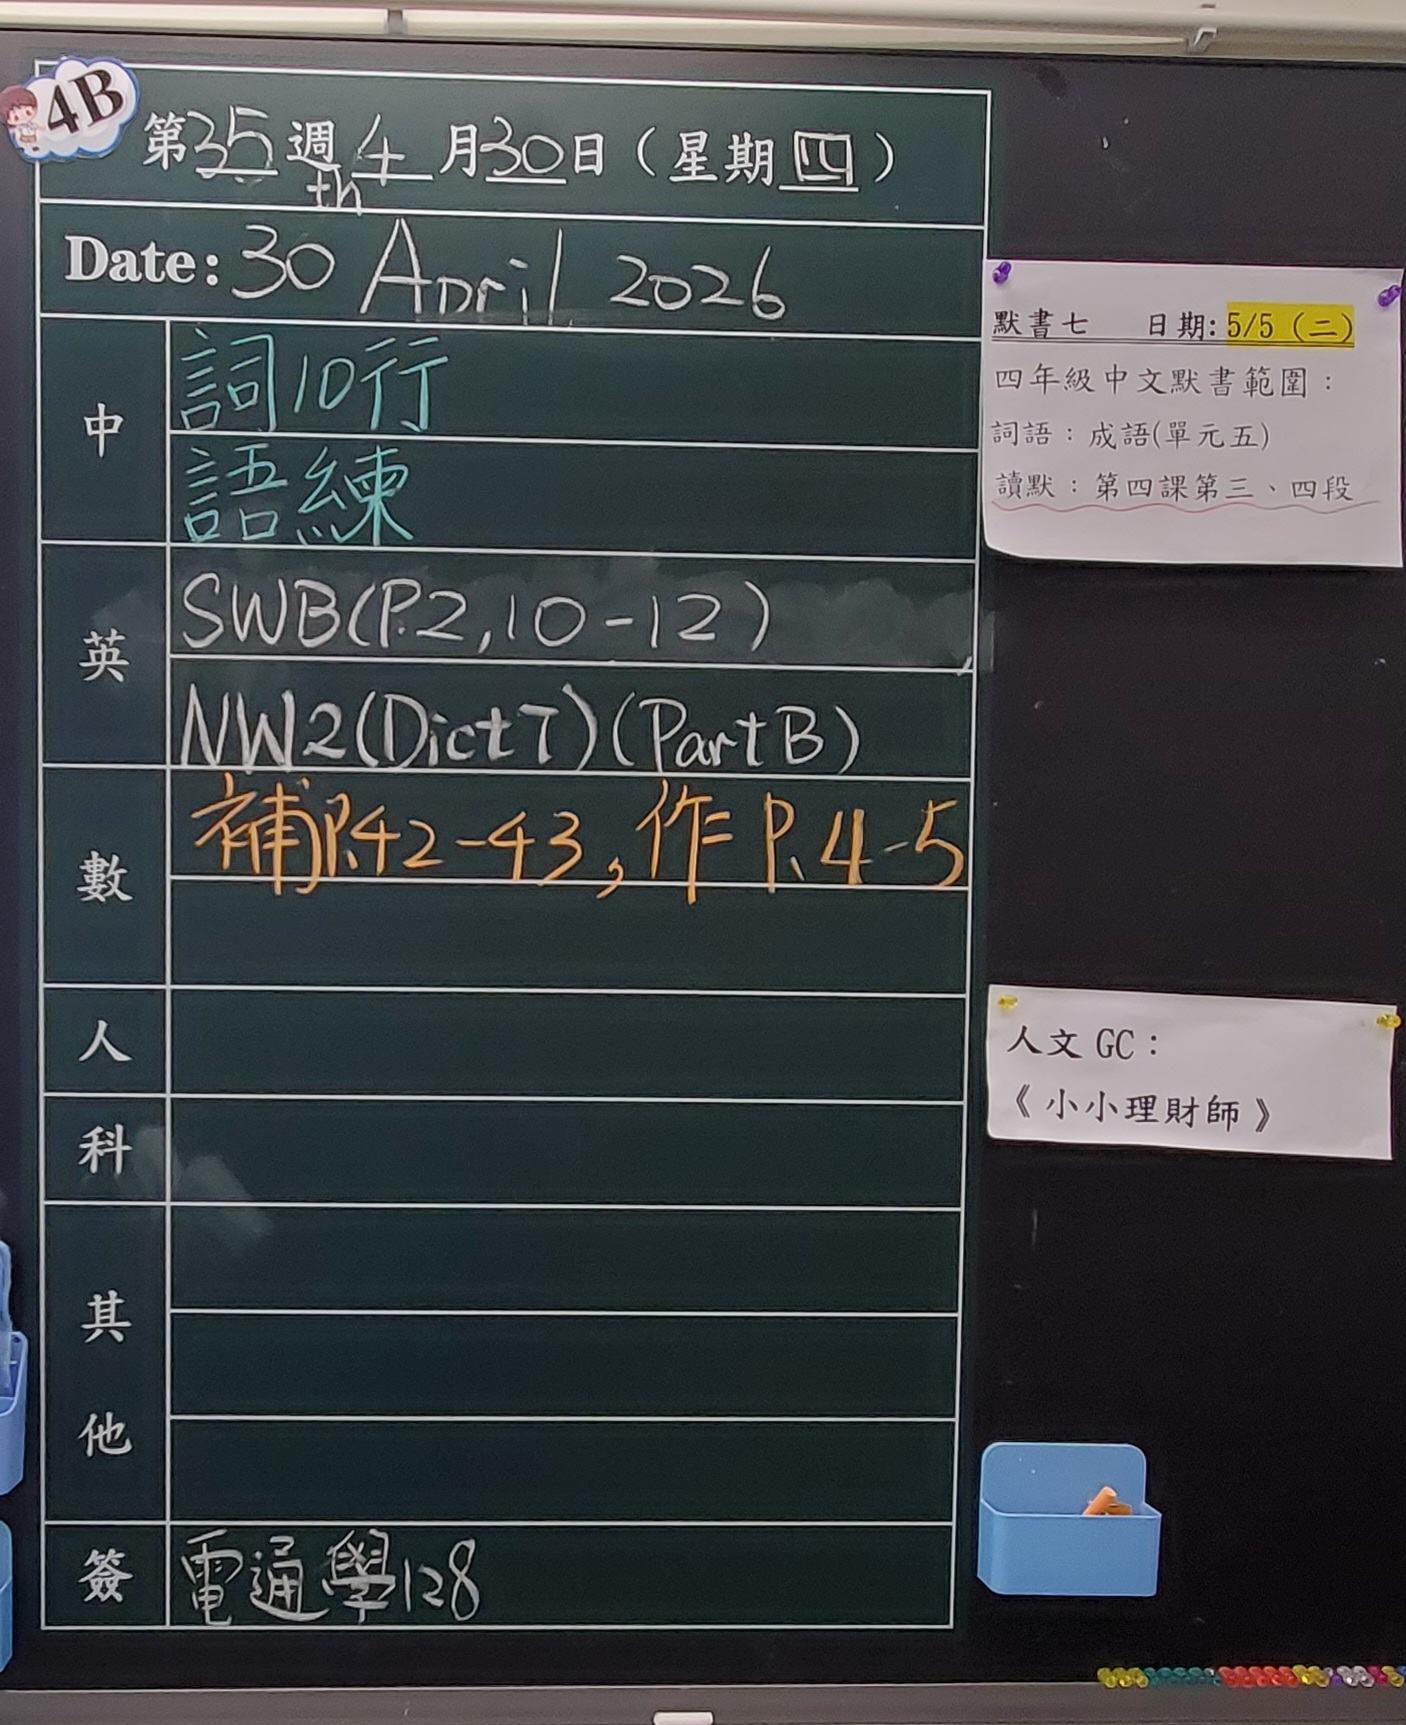 4B
第35週4月30日（星期四）
Date: 30th April 2026
中
詞10行
語練
英
SWB(P.2,10-12)
NW2(Dict7)(Part B)
數
補P.42-43,作P.4-5
人
科
其
他
簽
電通學128
默書七 日期:5/5（二）
四年級中文默書範圍：
詞語：成語(單元五)
讀默：第四課第三、四段
人文 GC：
《小小理財師》